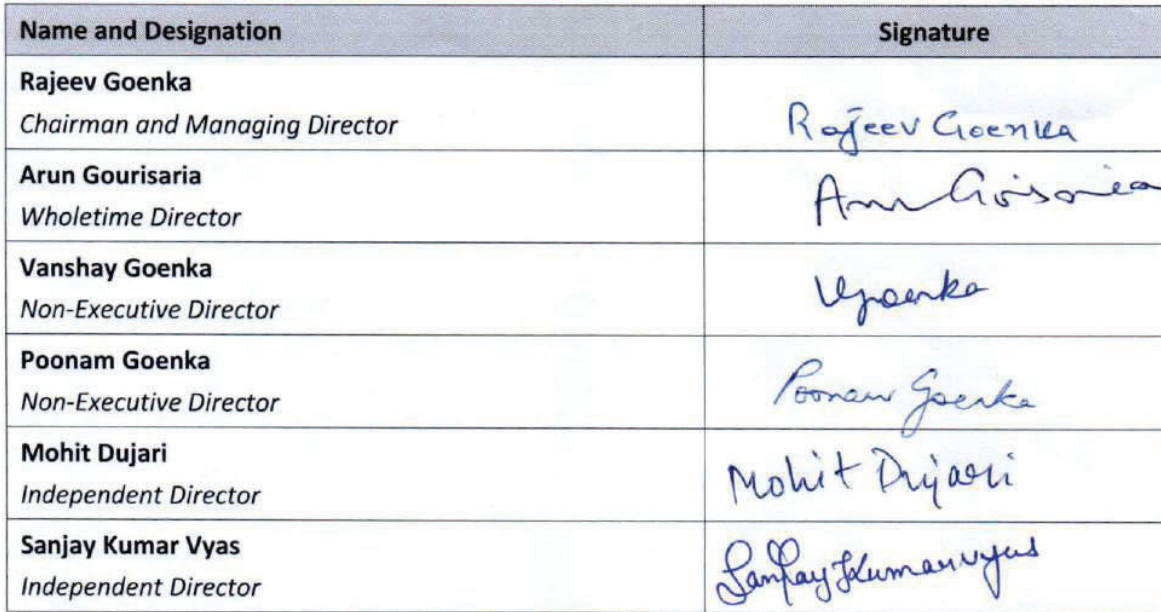 Name and Designation
Signature
Rajeev Goenka
Chairman and Managing Director
Rajeev Goenka
Arun Gourisaria
Wholetime Director
Vanshay Goenka
Non-Executive Director
VGoenka
Poonam Goenka
Non-Executive Director
Poonam Goenka
Mohit Dujari
Independent Director
Mohit Dujari
Sanjay Kumar Vyas
Independent Director
Sanjay Kumar Vyas